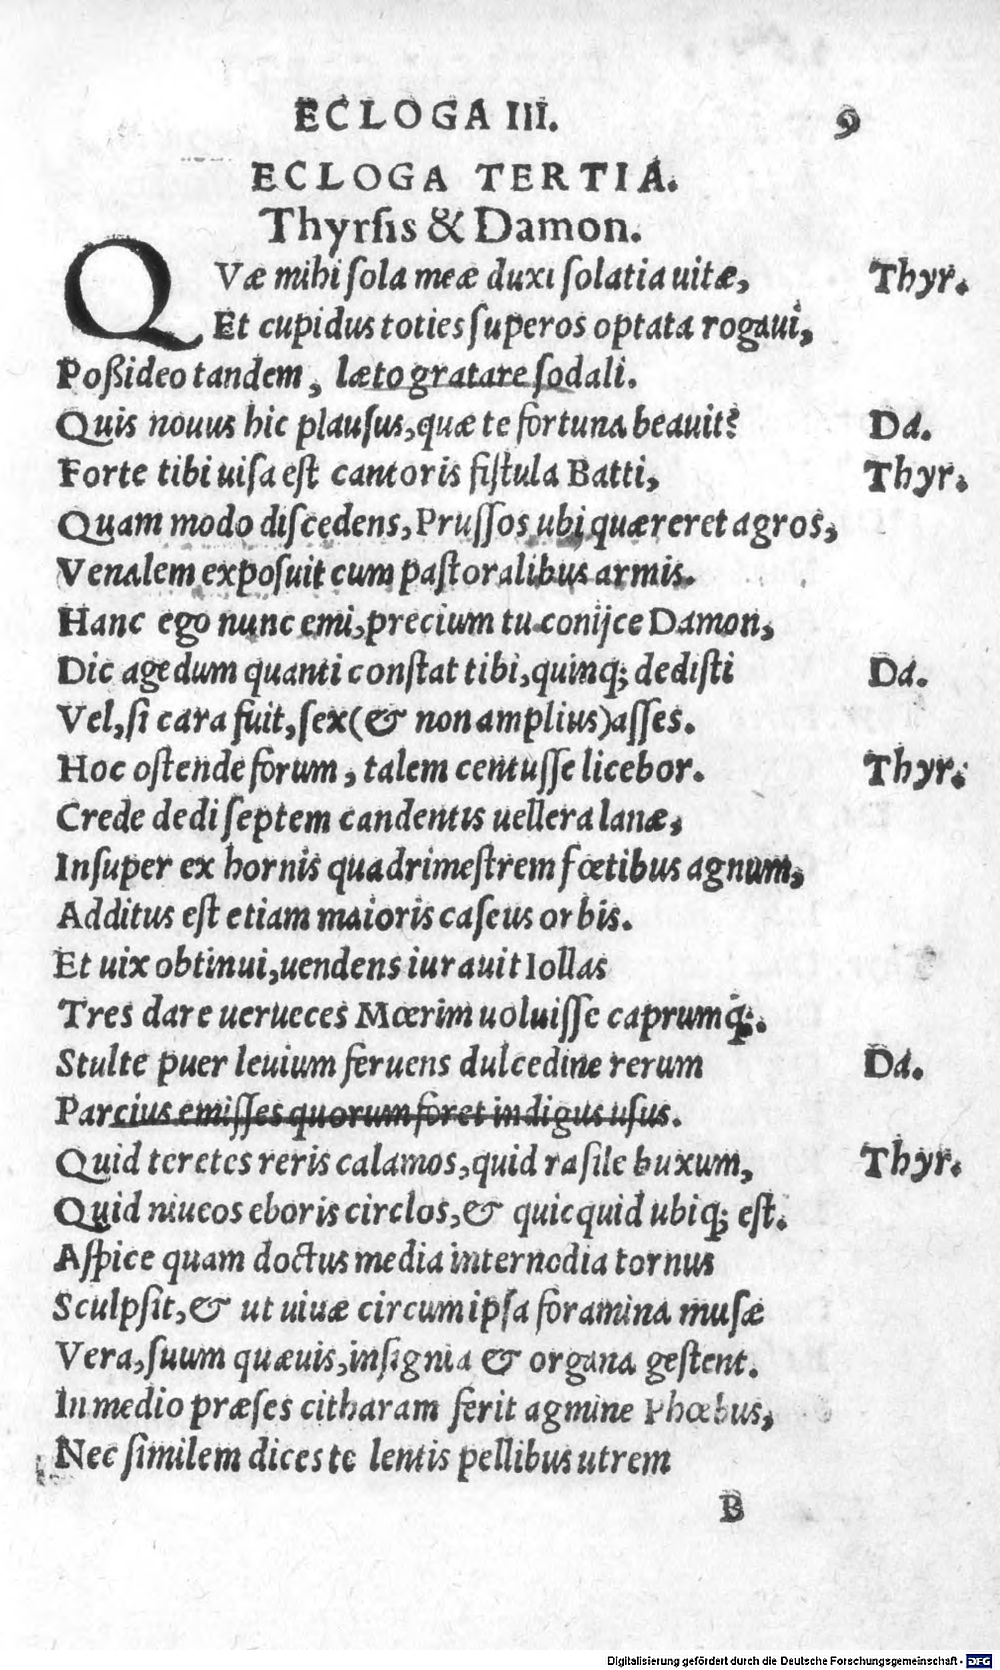 ECLOGA III. 9
ECLOGA TERTIA.
Thyrſis & Damon.
QVæ mihi ſola meæ duxi ſolatia uitæ, Thyr.
Et cupidus toties ſuperos optata rogaui,
Poßideo tandem, læto gratare ſodali.
Quis nouus hic plauſus, quæ te fortuna beauit? Da.
Forte tibi uiſa eſt cantoris fiſtula Batti, Thyr.
Quam modo diſcedens, Pruſſos ubi quæreret agros,
Venalem expoſuit cum paſtoralibus armis.
Hanc ego nunc emi, precium tu conijce Damon,
Dic age dum quanti conſtat tibi, quinq; dediſti Da.
Vel, ſi cara fuit, ſex (& non amplius) aſſes.
Hoc oſtende forum, talem centuſſe licebor. Thyr.
Crede dedi ſeptem candentis uellera lanæ,
Inſuper ex hornis quadrimeſtrem fœtibus agnum,
Additus eſt etiam maioris caſeus orbis.
Et uix obtinui, uendens iurauit Iollas
Tres dare uerueces Mœrim uoluiſſe caprumq́;.
Stulte puer leuium feruens dulcedine rerum Da.
Parcius emiſſes quorum foret indigus uſus.
Quid teretes reris calamos, quid raſile buxum, Thyr.
Quid niueos eboris circlos, & quicquid ubiq; eſt.
Aſpice quam doctus media internodia tornus
Sculpſit, & ut uiuæ circum ipſa foramina muſæ
Vera, ſuum quæuis, inſignia & organa geſtent.
In medio præſes citharam ferit agmine Phœbus,
Nec ſimilem dices te lentis pellibus utrem
B
Digitalisierung gefördert durch die Deutsche Forschungsgemeinschaft - DFG